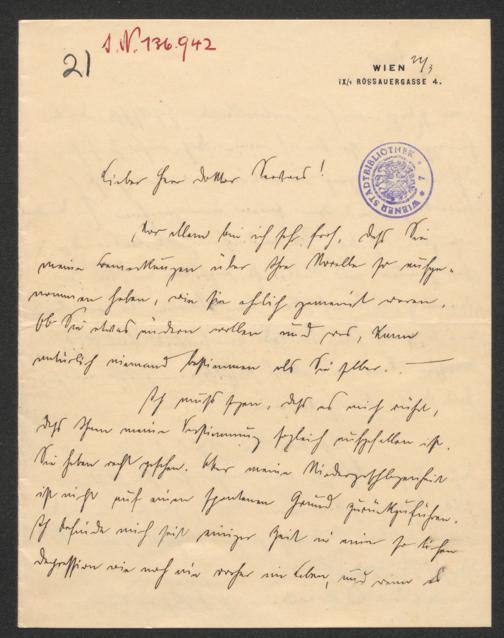 21
I.N. 136.942
WIEN
IX/1 ROSSAUERGASSE 4.
WIENER STADTBIBLIOTHEK
Lieber Herr Doktor Servaes!
Vor allem bin ich sehr froh, daß Sie
meine Bemerkungen über Ihre Novelle so aufge-
nommen haben, wie sie ehrlich gemeint waren.
Ob Sie etwas ändern wollen und was, kann
natürlich niemand bestimmen als Sie selber. —
Ich muß sagen, daß es mich rührt,
daß Ihnen meine Verstimmung sogleich aufgefallen ist.
Sie haben recht gesehen. Aber meine Niedergeschlagenheit
ist nicht auf einen spontanen Grund zurückzuführen.
Ich befinde mich seit einiger Zeit in einer so tiefen
Depression wie noch nie vorher im Leben, und wenn es